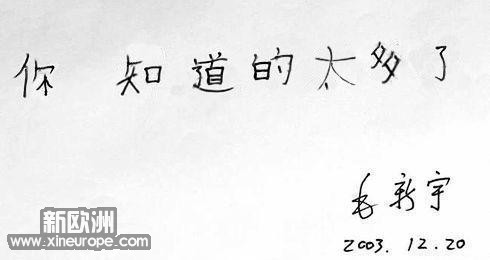 你 知道的太多了
毛新宇
2003.12.20
新欧洲
www.xineurope.com